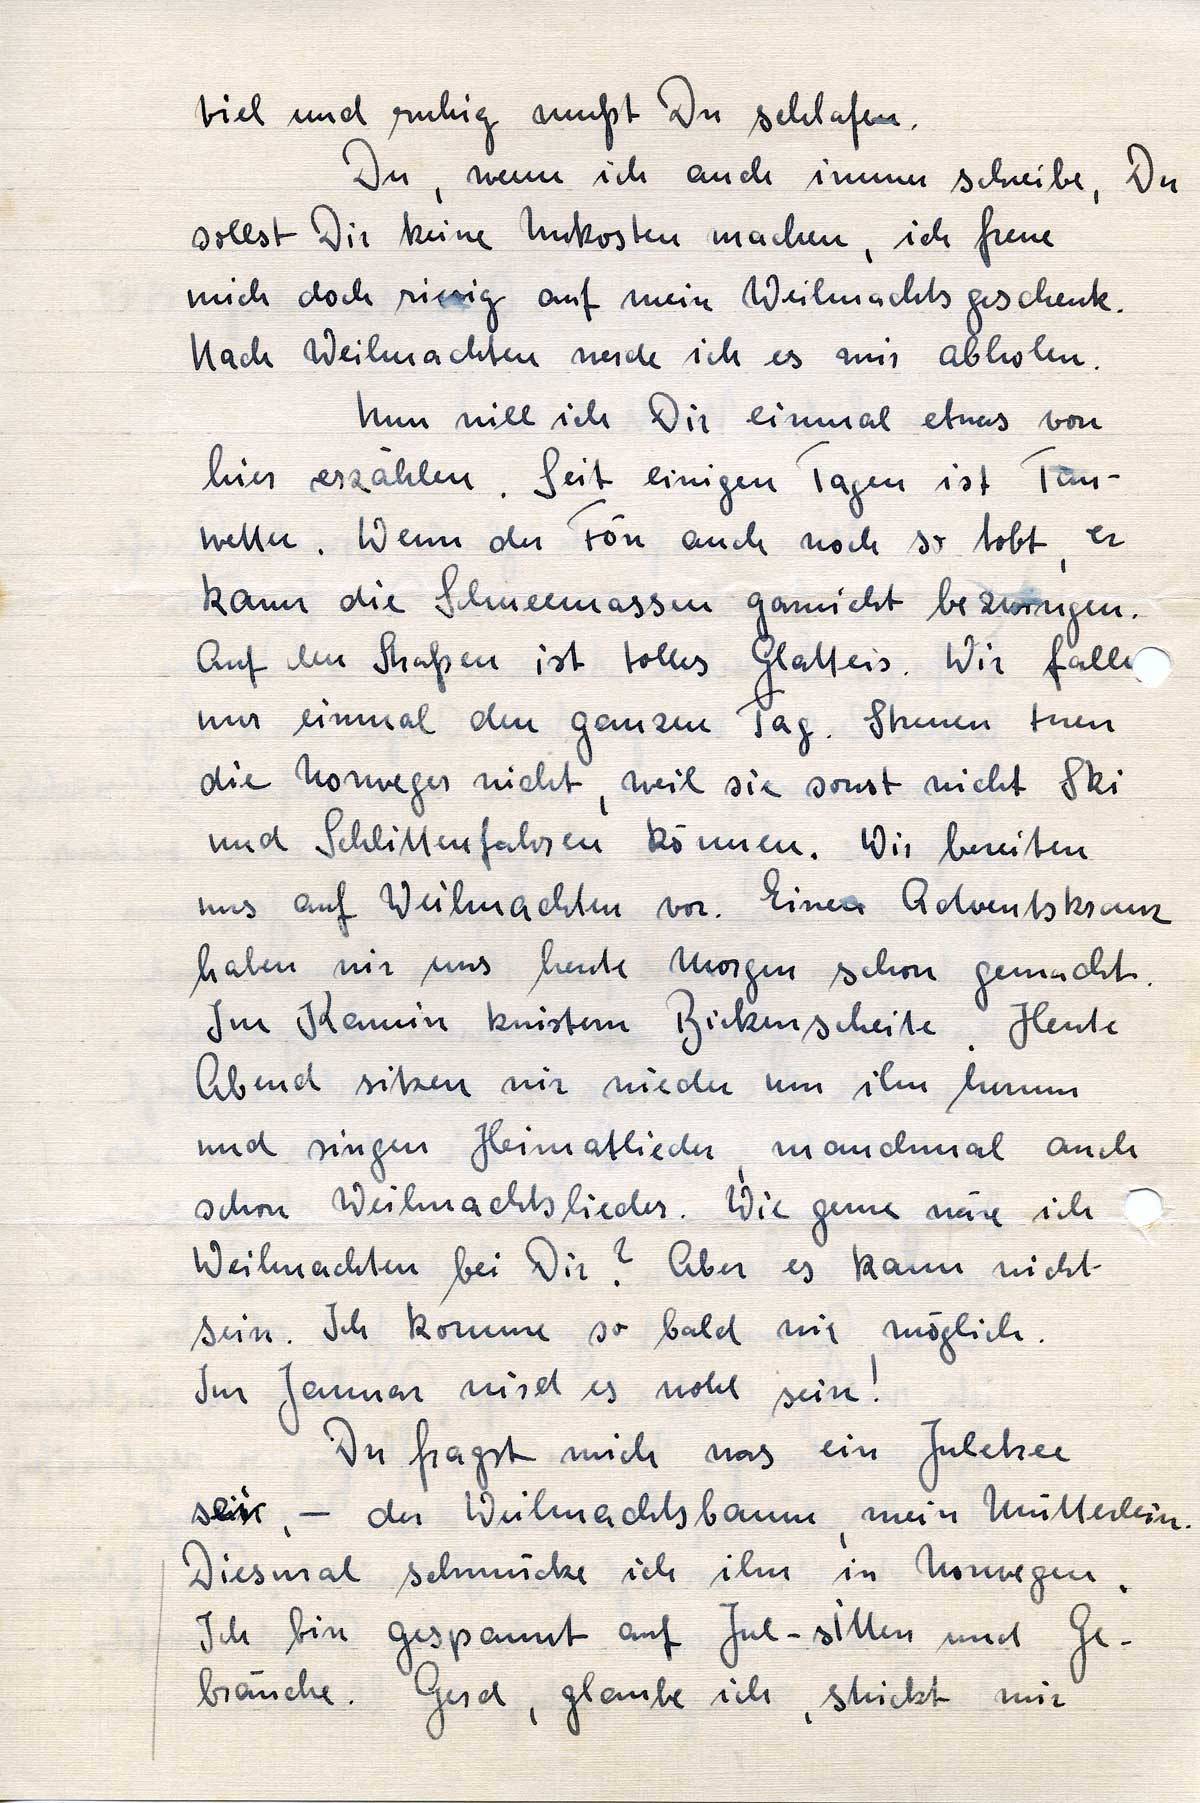 viel und ruhig mußt Du schlafen.
Du, wenn ich auch immer schreibe, Du
sollst Dir keine Unkosten machen, ich freue
mich doch riesig auf mein Weihnachtsgeschenk.
Nach Weihnachten werde ich es mir abholen.
Nun will ich Dir einmal etwas von
hier erzählen. Seit einigen Tagen ist Tau-
wetter. Wenn der Fön auch noch so tobt, er
kann die Schneemassen garnicht bezwingen.
Auf den Straßen ist tolles Glatteis. Wir fallen
nur einmal den ganzen Tag. Streuen tuen
die Norweger nicht, weil sie sonst nicht Ski
und Schlittenfahren können. Wir bereiten
uns auf Weihnachten vor. Einen Adventskranz
haben wir uns heute Morgen schon gemacht.
Im Kamin knistern Birkenscheite. Heute
Abend sitzen wir wieder um ihn herum
und singen Heimatlieder, manchmal auch
schon Weihnachtslieder. Wie gerne wäre ich
Weihnachten bei Dir? Aber es kann nicht
sein. Ich komme so bald wie möglich.
Im Januar wird es wohl sein!
Du fragst mich was ein Juletree
sei, – der Weihnachtsbaum, mein Mütterlein.
Diesmal schmücke ich ihn in Norwegen.
Ich bin gespannt auf Jul-sitten und Ge-
bräuche. Gerd, glaube ich, strickt mir